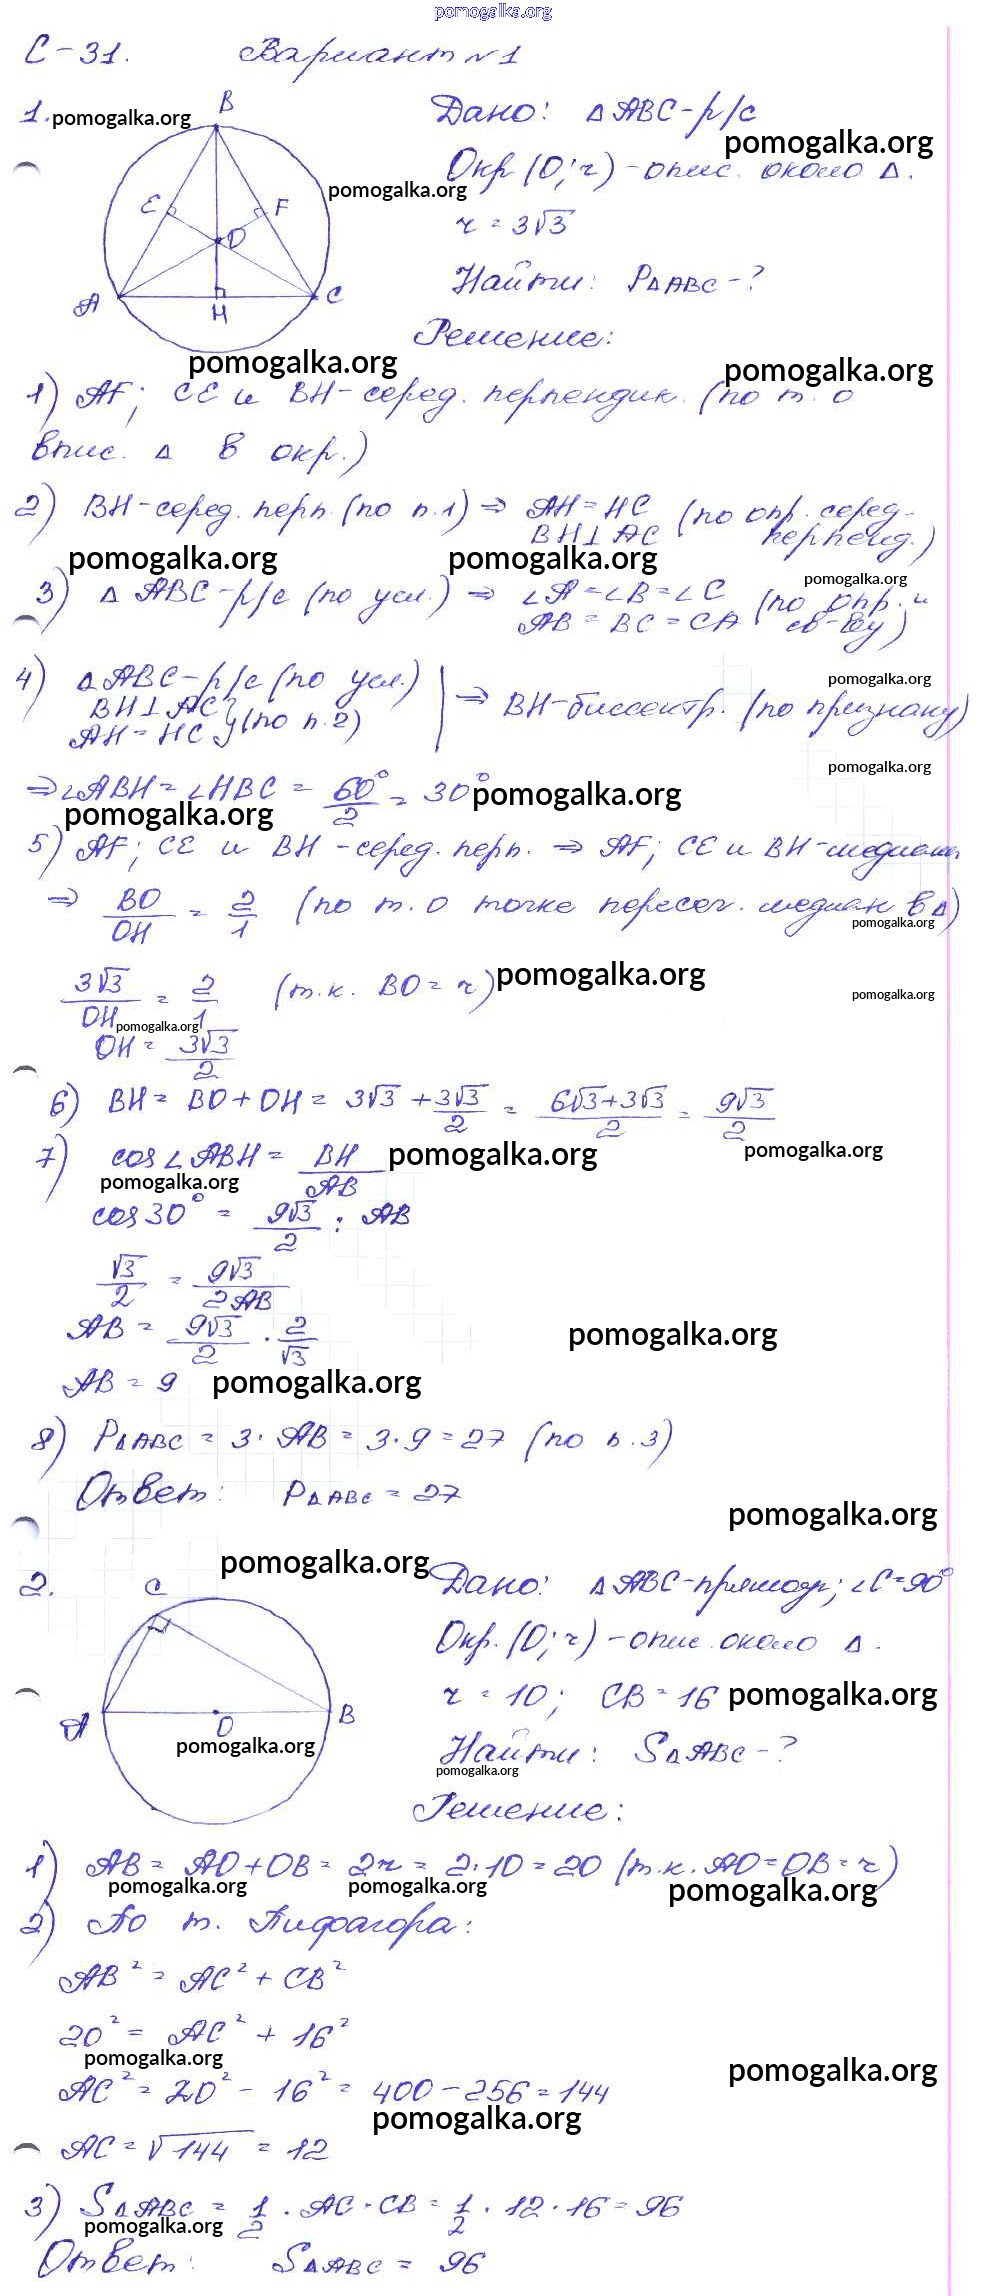 pomogalka.org
С-31. Вариант №1
1. pomogalka.org
B
E
F
O
A
H
C
pomogalka.org
Дано: △ABC-р/с
pomogalka.org
Окр(O; r) - опис. около △.
r = 3√3
Найти: P△ABC - ?
Решение:
pomogalka.org pomogalka.org
1) AF; CE и BH - серед. перпендик. (по т. о
впис. △ в окр.)
2) BH - серед. перп. (по п.1) ⇒ AH = HC (по опр. серед.
BH⊥AC перпенд.)
pomogalka.org pomogalka.org
pomogalka.org
3) △ABC-р/с (по усл.) ⇒ ∠A = ∠B = ∠C (по опр. и
AB = BC = CA св-ву)
4) △ABC-р/с (по усл.)
pomogalka.org
BH⊥AC
AH = HC } (по п.2) ⇒ BH-биссектр. (по признаку)
pomogalka.org
⇒ ∠ABH = ∠HBC = 60°/2 = 30° pomogalka.org
pomogalka.org
5) AF; CE и BH - серед. перп. ⇒ AF; CE и BH-медианы
⇒ BO/OH = 2/1 (по т. о точке пересеч. медиан в △)
pomogalka.org
3√3/OH = 2/1 (т.к. BO = r) pomogalka.org
pomogalka.org
pomogalka.org
OH = 3√3/2
6) BH = BO + OH = 3√3 + 3√3/2 = 6√3+3√3/2 = 9√3/2
7) cos∠ABH = BH/AB pomogalka.org pomogalka.org
pomogalka.org
cos 30° = 9√3/2 : AB
√3/2 = 9√3/2AB
AB = 9√3/2 · 2/√3
pomogalka.org
AB = 9 pomogalka.org
8) P△ABC = 3 · AB = 3 · 9 = 27 (по п.3)
Ответ: P△ABC = 27
pomogalka.org
pomogalka.org
2.
C
A
O
B
pomogalka.org
Дано: △ABC-прямоуг; ∠C=90°
Окр. (O; r) - опис. около △.
r = 10; CB = 16 pomogalka.org
Найти: S△ABC - ?
pomogalka.org
Решение:
1) AB = AO + OB = 2r = 2·10 = 20 (т.к. AO = OB = r)
pomogalka.org pomogalka.org pomogalka.org
2) По т. Пифагора:
AB² = AC² + CB²
20² = AC² + 16²
pomogalka.org pomogalka.org
AC² = 20² - 16² = 400 - 256 = 144
pomogalka.org
AC = √144 = 12
3) S△ABC = 1/2 · AC · CB = 1/2 · 12 · 16 = 96
pomogalka.org
Ответ: S△ABC = 96